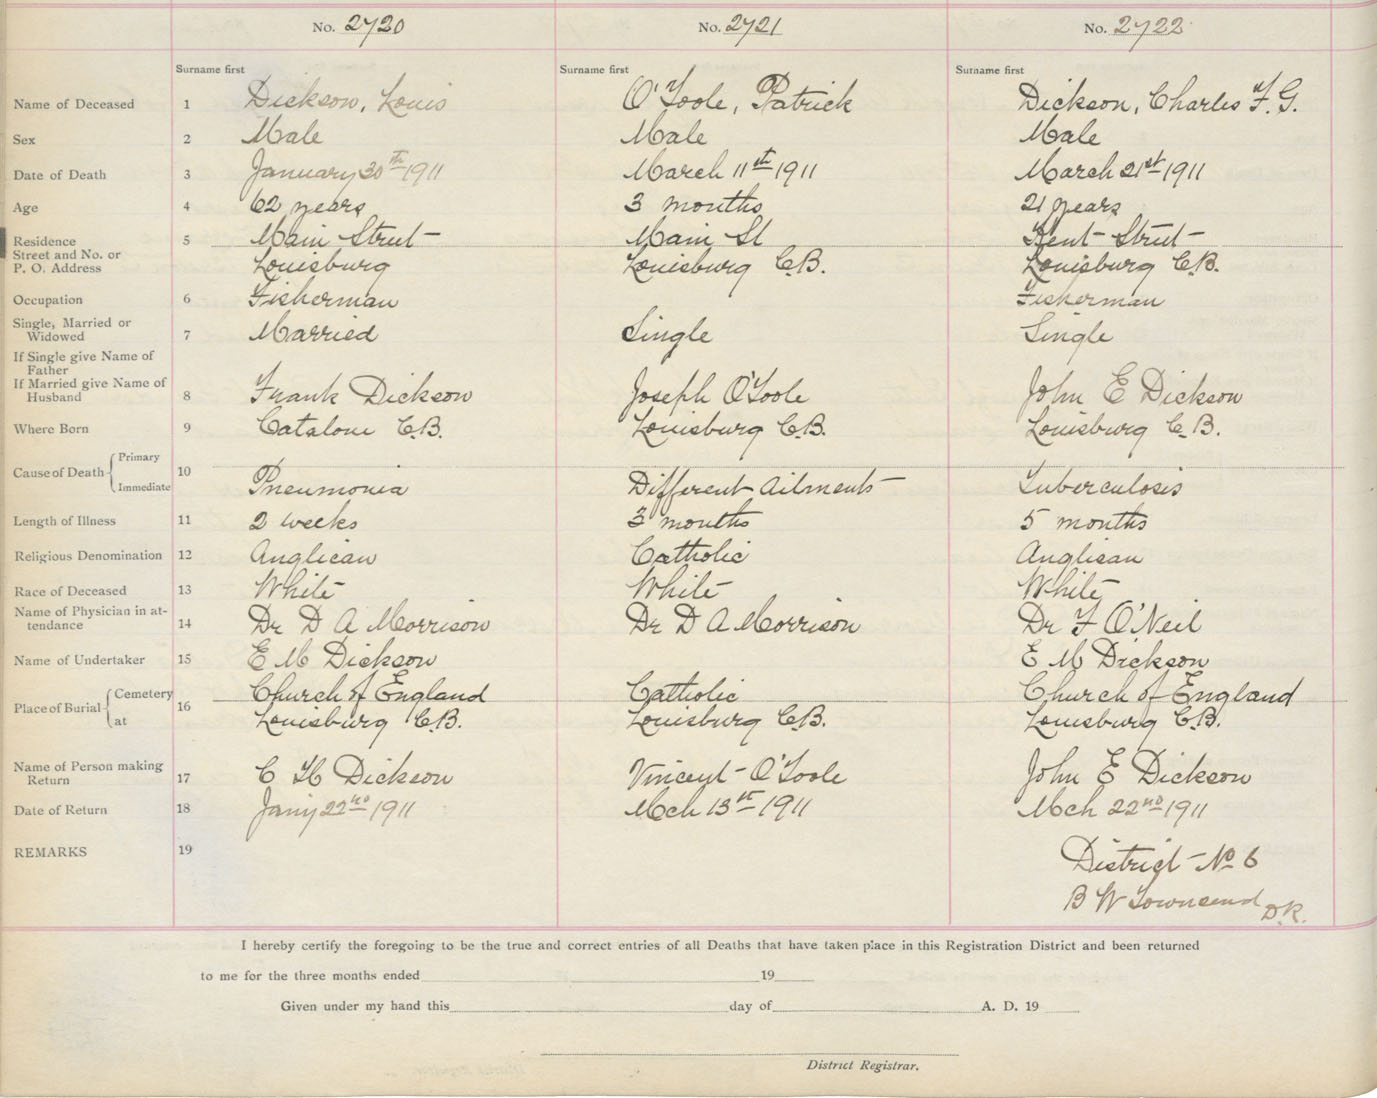 No. 2720 No. 2721 No. 2722
Surname first Surname first Surname first
Name of Deceased 1 Dickson, Louis O'Toole, Patrick Dickson, Charles F. G.
Sex 2 Male Male Male
Date of Death 3 January 30th 1911 March 11th 1911 March 21st 1911
Age 4 62 years 3 months 21 years
Residence 5 Main Street Main St Kent Street
Street and No. or
P. O. Address Louisburg Louisburg C.B. Louisburg C.B.
Occupation 6 Fisherman Fisherman
Single, Married or
Widowed 7 Married Single Single
If Single give Name of
Father
If Married give Name of
Husband 8 Frank Dickson Joseph O'Toole John E Dickson
Where Born 9 Catalone C.B. Louisburg C.B. Louisburg C.B.
Cause of Death Primary 10
Immediate Pneumonia Different Ailments Tuberculosis
Length of Illness 11 2 weeks 3 months 5 months
Religious Denomination 12 Anglican Catholic Anglican
Race of Deceased 13 White White White
Name of Physician in at-
tendance 14 Dr D A Morrison Dr D A Morrison Dr F O'Neil
Name of Undertaker 15 E M Dickson E M Dickson
Place of Burial Cemetery 16 Church of England Catholic Church of England
at Louisburg C.B. Louisburg C.B. Louisburg C.B.
Name of Person making
Return 17 C H Dickson Vincent O'Toole John E Dickson
Date of Return 18 Jany 22nd 1911 Mch 13st 1911 Mch 22nd 1911
REMARKS 19 District No 6
B W Townsend D.R.
I hereby certify the foregoing to be the true and correct entries of all Deaths that have taken place in this Registration District and been returned
to me for the three months ended 19
Given under my hand this day of A. D. 19
District Registrar.